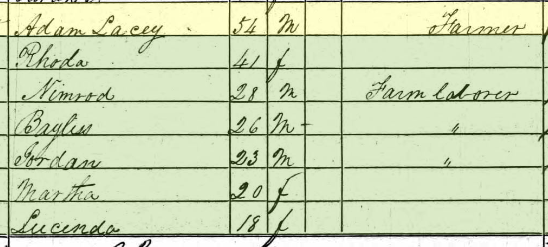 Adam Lacey 54 M Farmer
Rhoda 41 f
Nimrod 28 M Farm laborer
Bayliss 26 M "
Jordan 23 M "
Martha 20 f
Lucinda 18 f